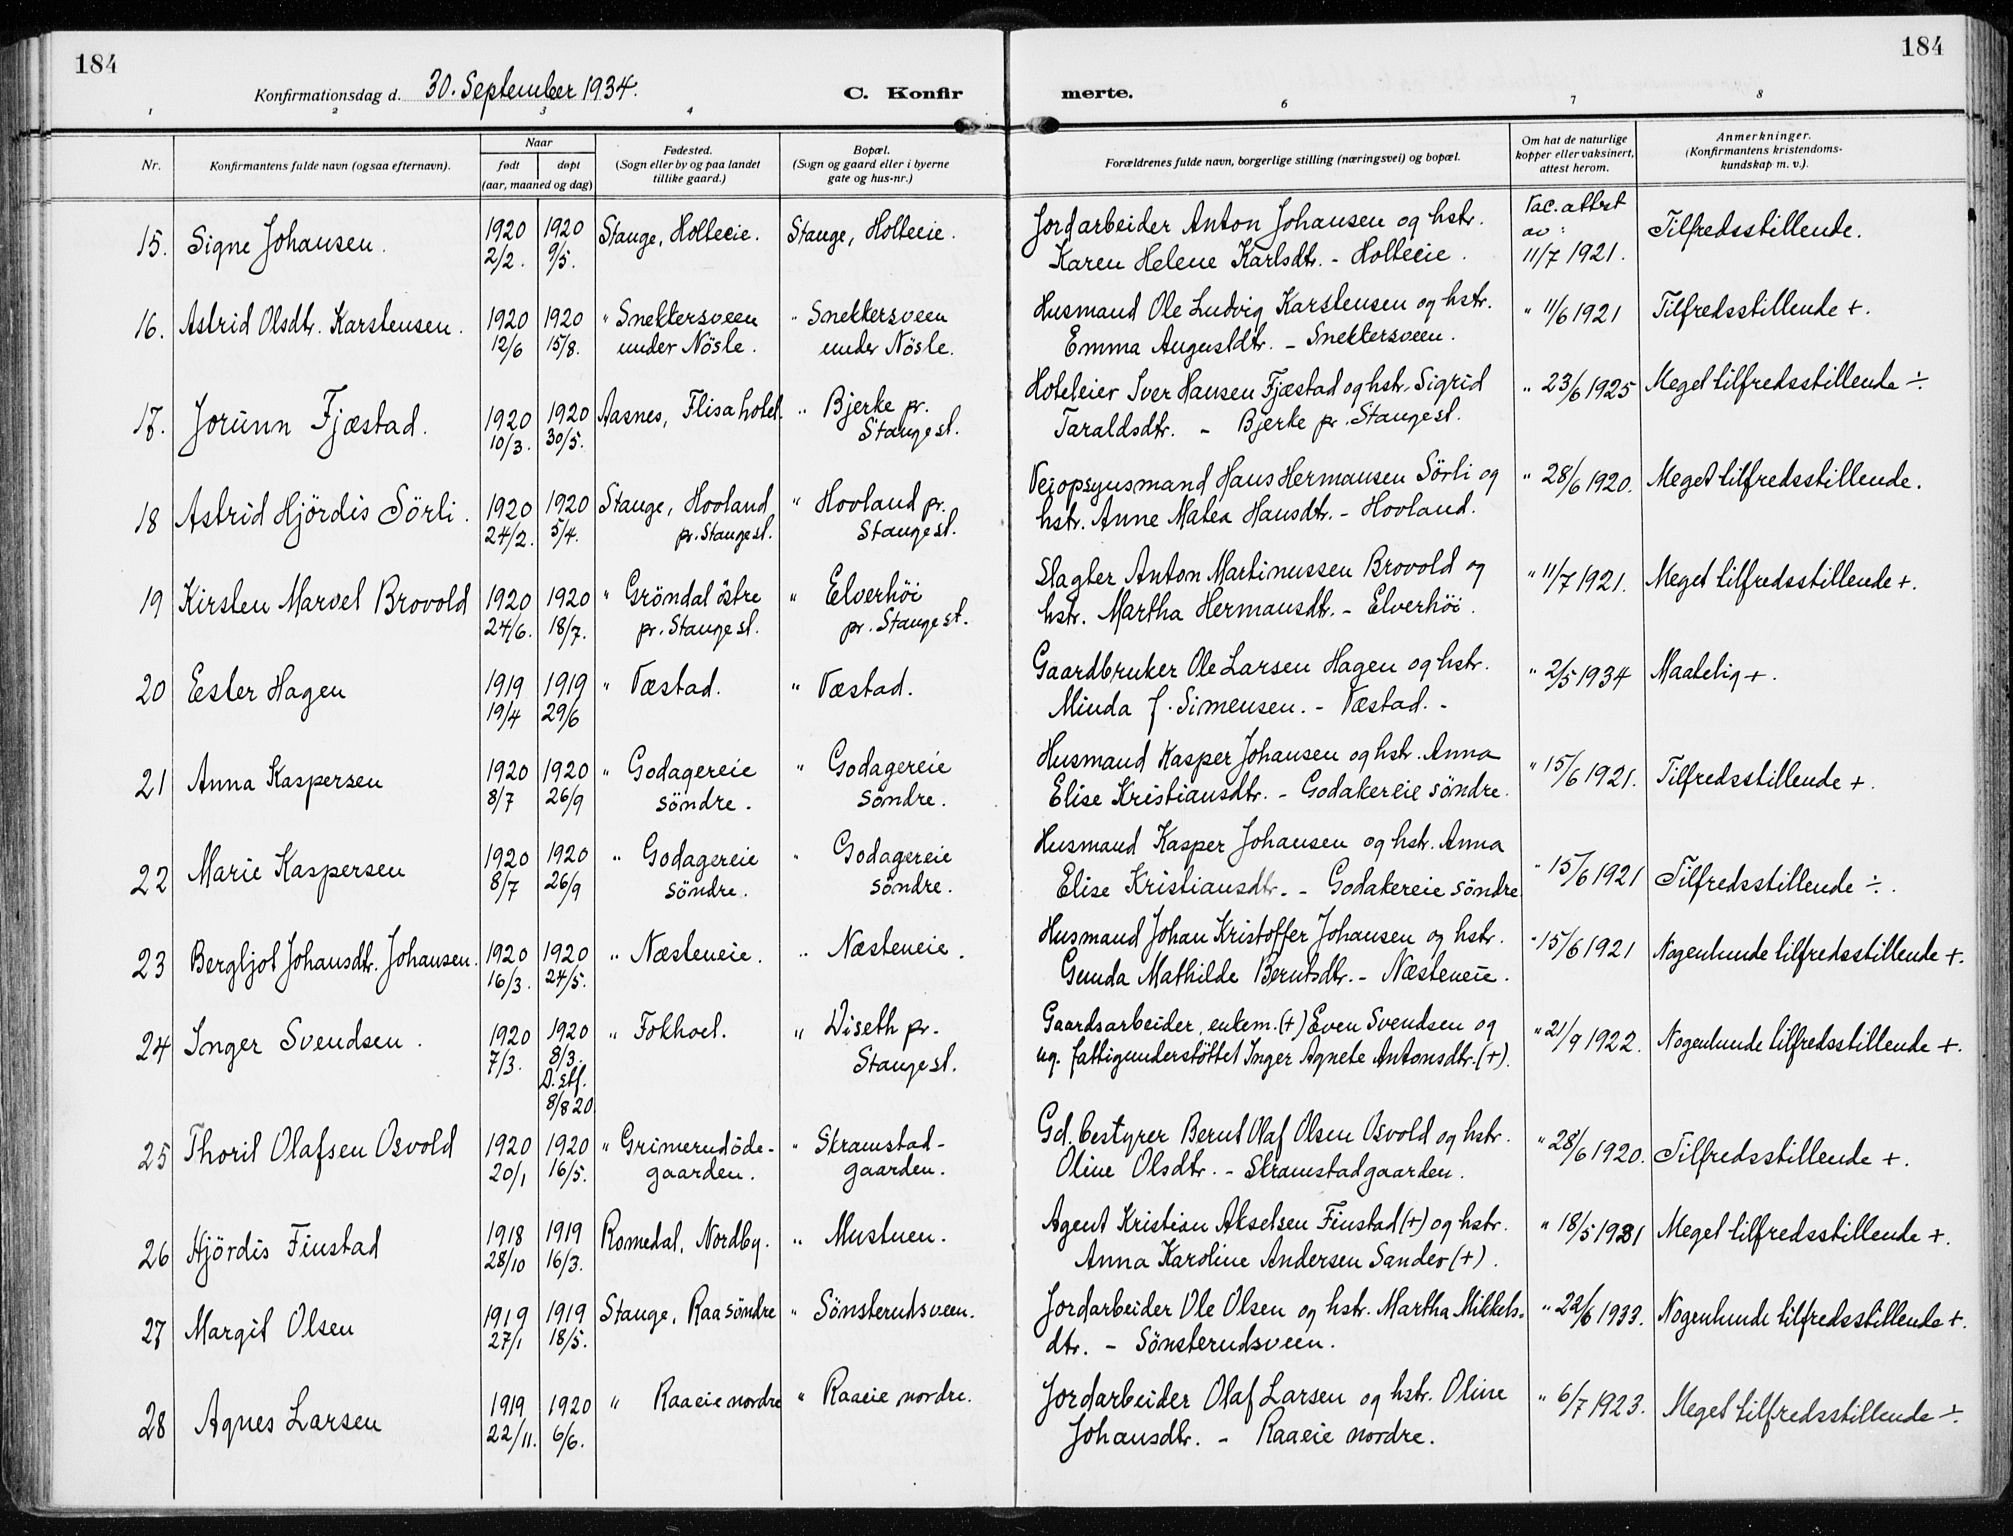 184
184
Konfirmationsdag d. 30. September 1934.
C. Konfir
merte.
1 2 3 4 6 7 8
Nr.
Konfirmantens fulde navn (ogsaa efternavn).
Naar
født
døpt
(aar, maaned og dag)
Fødested.
(Sogn eller by og paa landet
tillike gaard.)
Bopæl.
(Sogn og gaard eller i byerne
gate og hus-nr.)
Forældrenes fulde navn, borgerlige stilling (næringsvei) og bopæl.
Om hat de naturlige
kopper eller vaksinert,
attest herom.
Anmerkninger.
(Konfirmantens kristendoms-
kundskap m. v.).
15. Signe Johansen. 1920 1920 Stange, Holteeie. Stange, Holteeie. Jordarbeider Anton Johansen og hstr. Vac. attest av: Tilfredsstillende.
2/2. 9/5. Karen Helene Karlsdtr. - Holteeie. 11/7 1921.
16. Astrid Olsdtr. Karstensen. 1920 1920 " Snekkersveen " Snekkersveen Husmand Ole Ludvig Karstensen og hstr. " 11/6 1921 Tilfredsstillende +.
12/6 15/8. under Nösle. under Nösle. Emma Augustdtr. - Snekkersveen.
17. Jorunn Fjæstad. 1920 1920 Aasnes, Flisa hotel. " Bjerke pr. Hoteleier Iver Hansen Fjæstad og hstr. Sigrid " 23/6 1925 Meget tilfredsstillende ÷.
10/3. 30/5. Stange st. Taraldsdtr. - Bjerke pr. Stange st.
18 Astrid Hjördis Sörli. 1920 1920 Stange, Hovland " Hovland pr. Veiopsynsmand Hans Hermansen Sörli og " 28/6 1920. Meget tilfredsstillende.
24/2. 5/4. pr. Stange st. Stange st. hstr. Anne Matea Hansdtr. - Hovland.
19 Kirsten Marvel Brovold 1920 1920 " Gröndal östre " Elverhöi Slagter Anton Martinussen Brovold og " 11/7 1921. Meget tilfredsstillende +.
24/6. 18/7. pr. Stange st. pr. Stange st. hstr. Martha Hermansdtr. - Elverhöi.
20 Ester Hagen 1919 1919 " Væstad. " Væstad. Gaardbruker Ole Larsen Hagen og hstr. " 2/5 1934 Maatelig +.
19/4 29/6 Minda f. Simensen. - Væstad. -
21 Anna Kaspersen 1920 1920 " Godagereie " Godagereie Husmand Kasper Johansen og hstr. Anna " 15/6 1921. Tilfredsstillende +.
8/7 26/9 söndre. söndre. Elise Kristiansdtr. - Godakereie söndre.
22 Marie Kaspersen 1920 1920 " Godagereie " Godagereie Husmand Kasper Johansen og hstr. Anna " 15/6 1921 Tilfredsstillende ÷.
8/7 26/9 söndre. söndre. Elise Kristiansdtr. - Godakereie söndre
23 Bergljot Johansdtr. Johansen. 1920 1920 " Næsteneie. " Næsteneie. Husmand Johan Kristoffer Johansen og hstr. " 15/6 1921 Nogenlunde tilfredsstillende +.
16/3. 24/5. Gunda Mathilde Berntsdtr. - Næsteneie.
24 Inger Svendsen. 1920 1920 " Fokhoel. " Diseth pr. Gaardsarbeider, enkem. (+) Even Svendsen og " 21/9 1922. Nogenlunde tilfredsstillende +.
7/3. 8/3. Stange st. ug. fattigunderstöttet Inger Agnete Antonsdtr. (+).
D. stf.
8/8 20
25 Thorit Olafsen Osvold 1920 1920 " Grimerudöde- " Skramstad- Gd. bestyrer Bernt Olaf Olsen Osvold og hstr. " 28/6 1920. Tilfredsstillende +.
20/1 16/5. gaarden. gaarden. Oline Olsdtr. - Skramstadgaarden.
26 Hjördis Finstad 1918 1919 Romedal, Nordby. " Mustuen. Agent Kristian Akselsen Finstad (+) og hstr. " 18/5 1931 Meget tilfredsstillende +.
28/10 16/3. Anna Karoline Andersen Sander (+).
27 Margit Olsen 1919 1919 Stange, Raa söndre " Sönsterudsveen. Jordarbeider Ole Olsen og hstr. Martha Mikkels- " 22/6 1933. Nogenlunde tilfredsstillende +.
27/1 18/5. dtr. - Sönsterudsveen.
28 Agnes Larsen 1919 1920 " Raaeie nordre " Raaeie nordre. Jordarbeider Olaf Larsen og hstr. Oline " 6/7 1923. Meget tilfredsstillende ÷.
22/11. 6/6. Johansdtr. - Raaeie nordre.